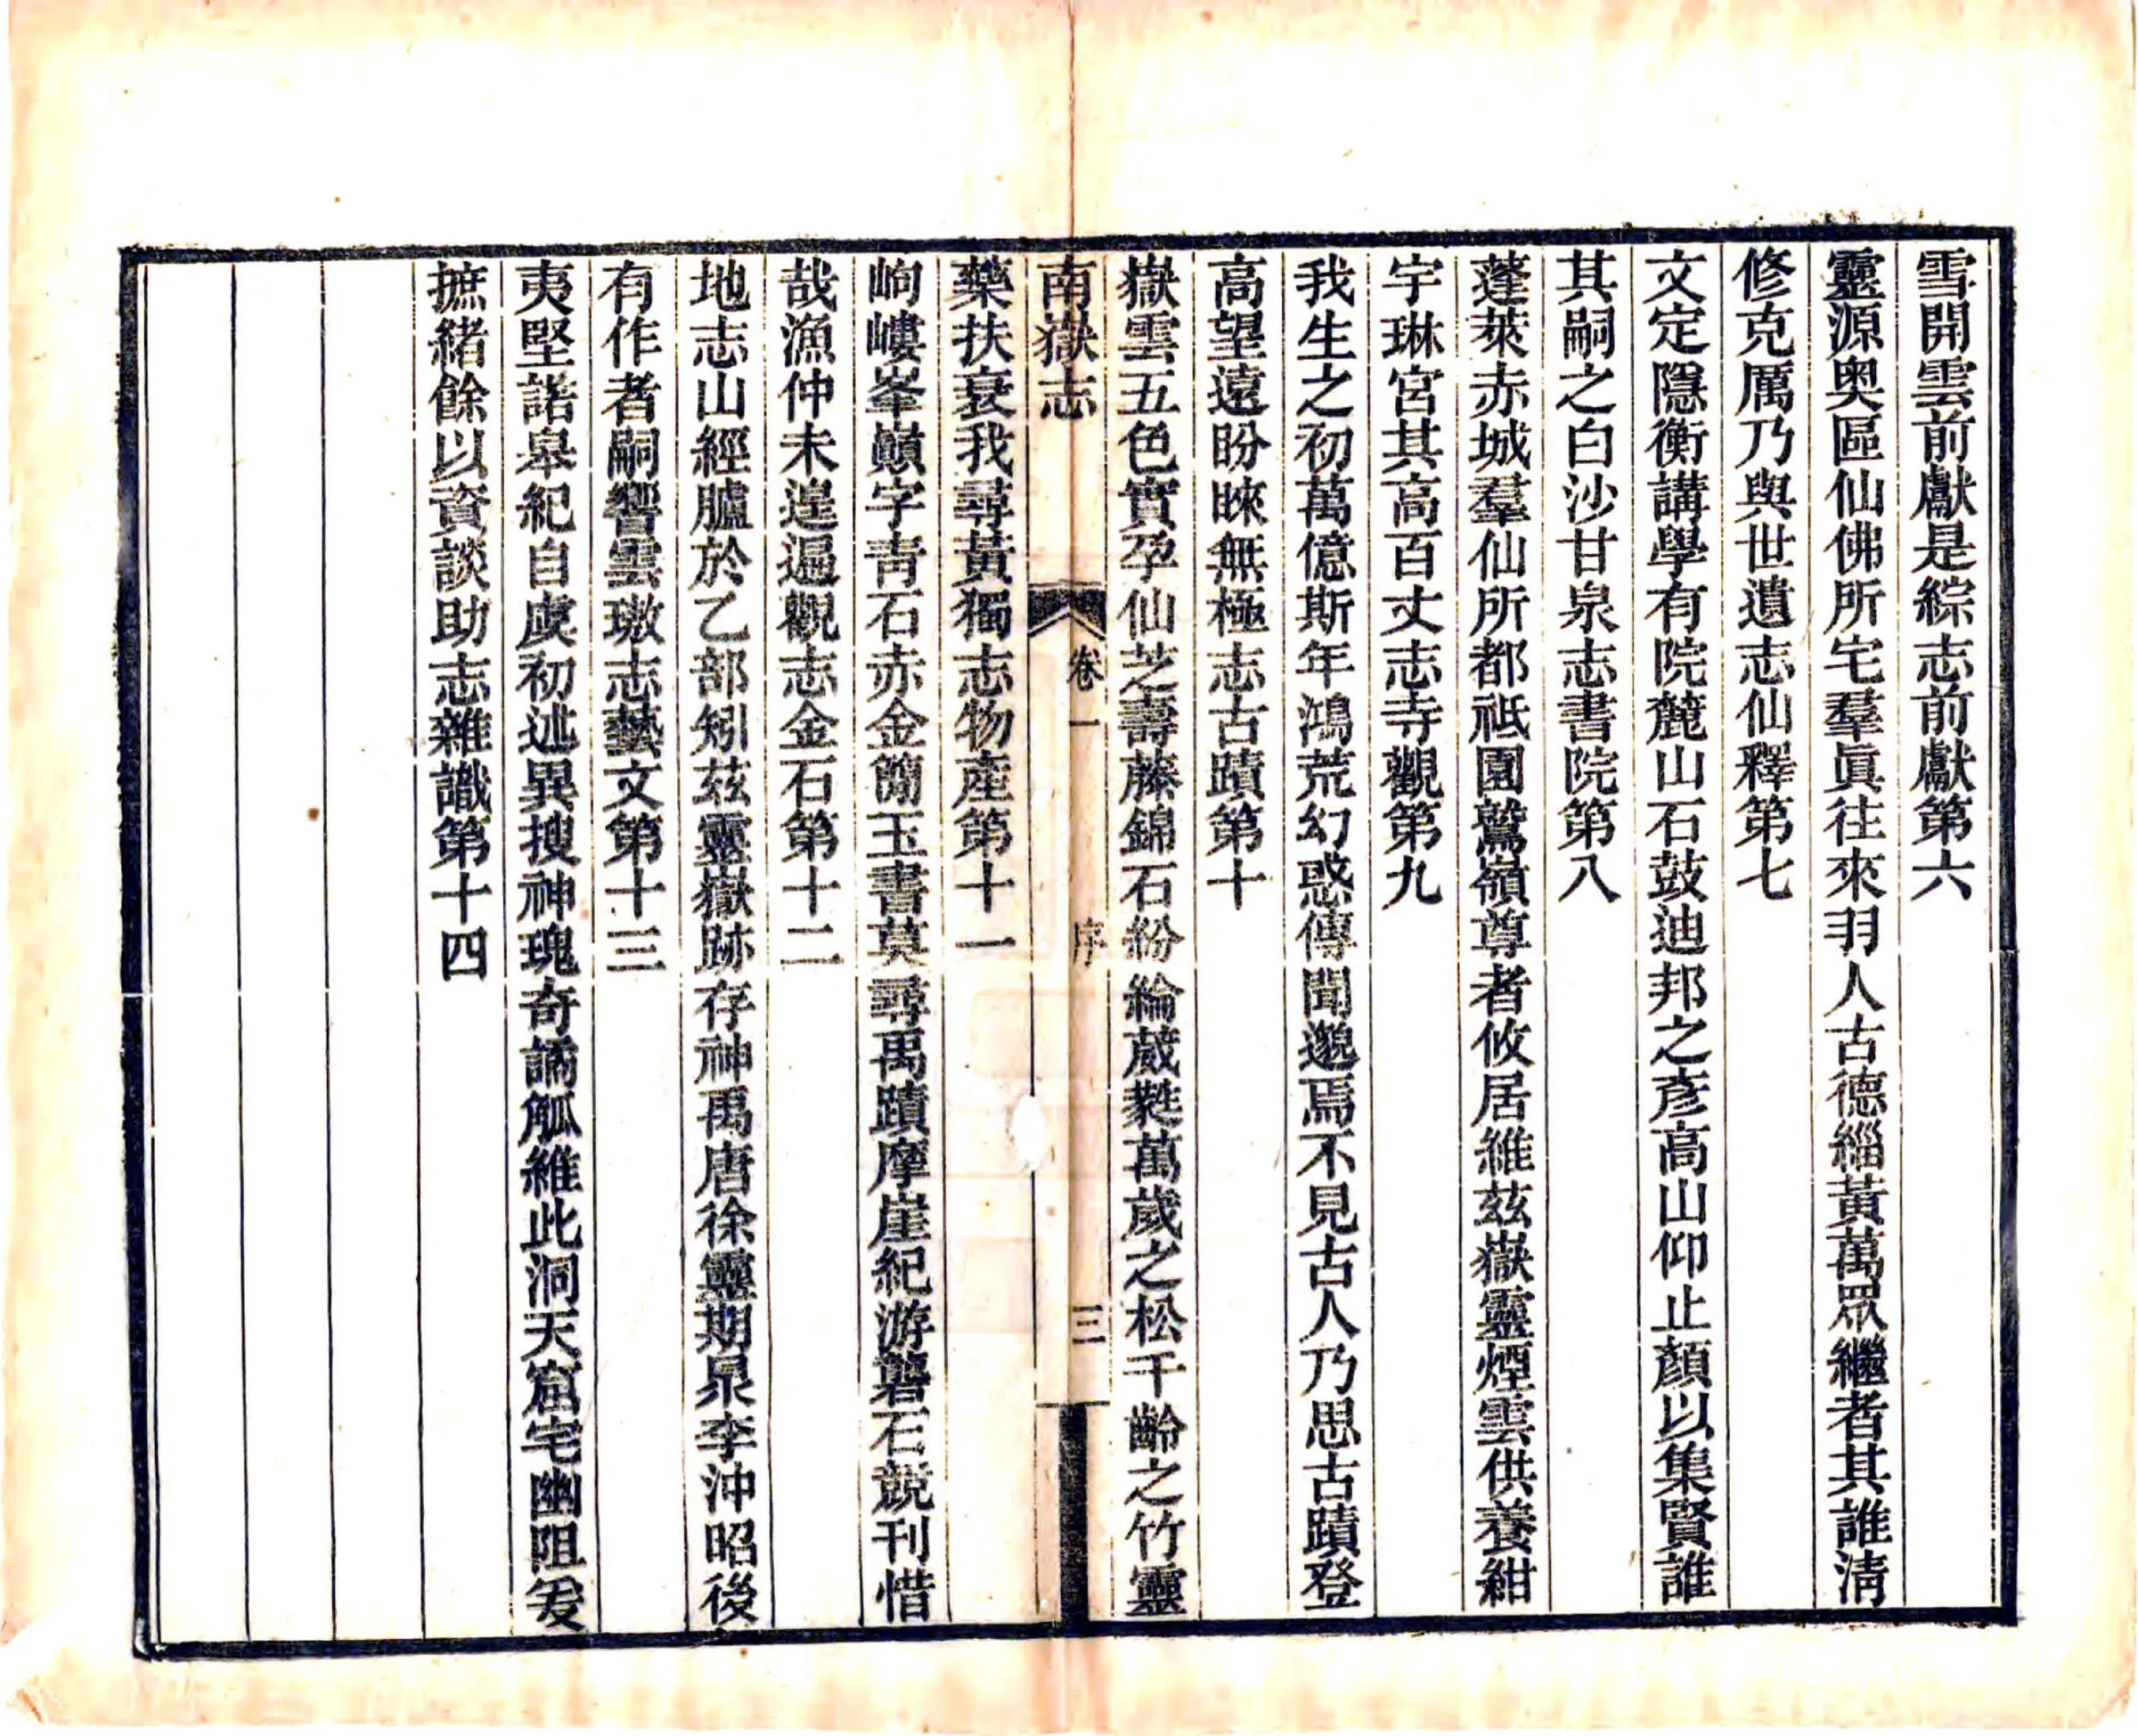 雪開雲前獻是綜志前獻第六
靈源奧區仙佛所宅羣眞往來羽人古德緇黃萬眾繼者其誰淸
修克厲乃與世遺志仙釋第七
文定隱衡講學有院麓山石鼓迪邦之彥高山仰止顏以集賢誰
其嗣之白沙甘泉志書院第八
蓬萊赤城羣仙所都祇園鷲嶺尊者攸居維茲嶽靈煙雲供養紺
宇琳宮其高百丈志寺觀第九
我生之初萬億斯年鴻荒幻惑傳聞邈焉不見古人乃思古蹟登
高望遠盼睞無極志古蹟第十
嶽雲五色實孕仙芝壽藤錦石紛綸葳蕤萬歲之松千齡之竹靈
南嶽志
卷一
序
三
藥扶衰我尋黃獨志物產第十一
岣嶁峯巔字靑石赤金簡玉書莫尋禹蹟摩崖紀游礱石競刊惜
哉漁仲未遑遍觀志金石第十二
地志山經臚於乙部矧茲靈嶽跡存神禹唐徐靈期泉李沖昭後
有作者嗣響雲璈志藝文第十三
夷堅諾皋紀自虞初述異搜神瑰奇譎觚維此洞天窟宅幽阻爰
摭緒餘以資談助志雜識第十四